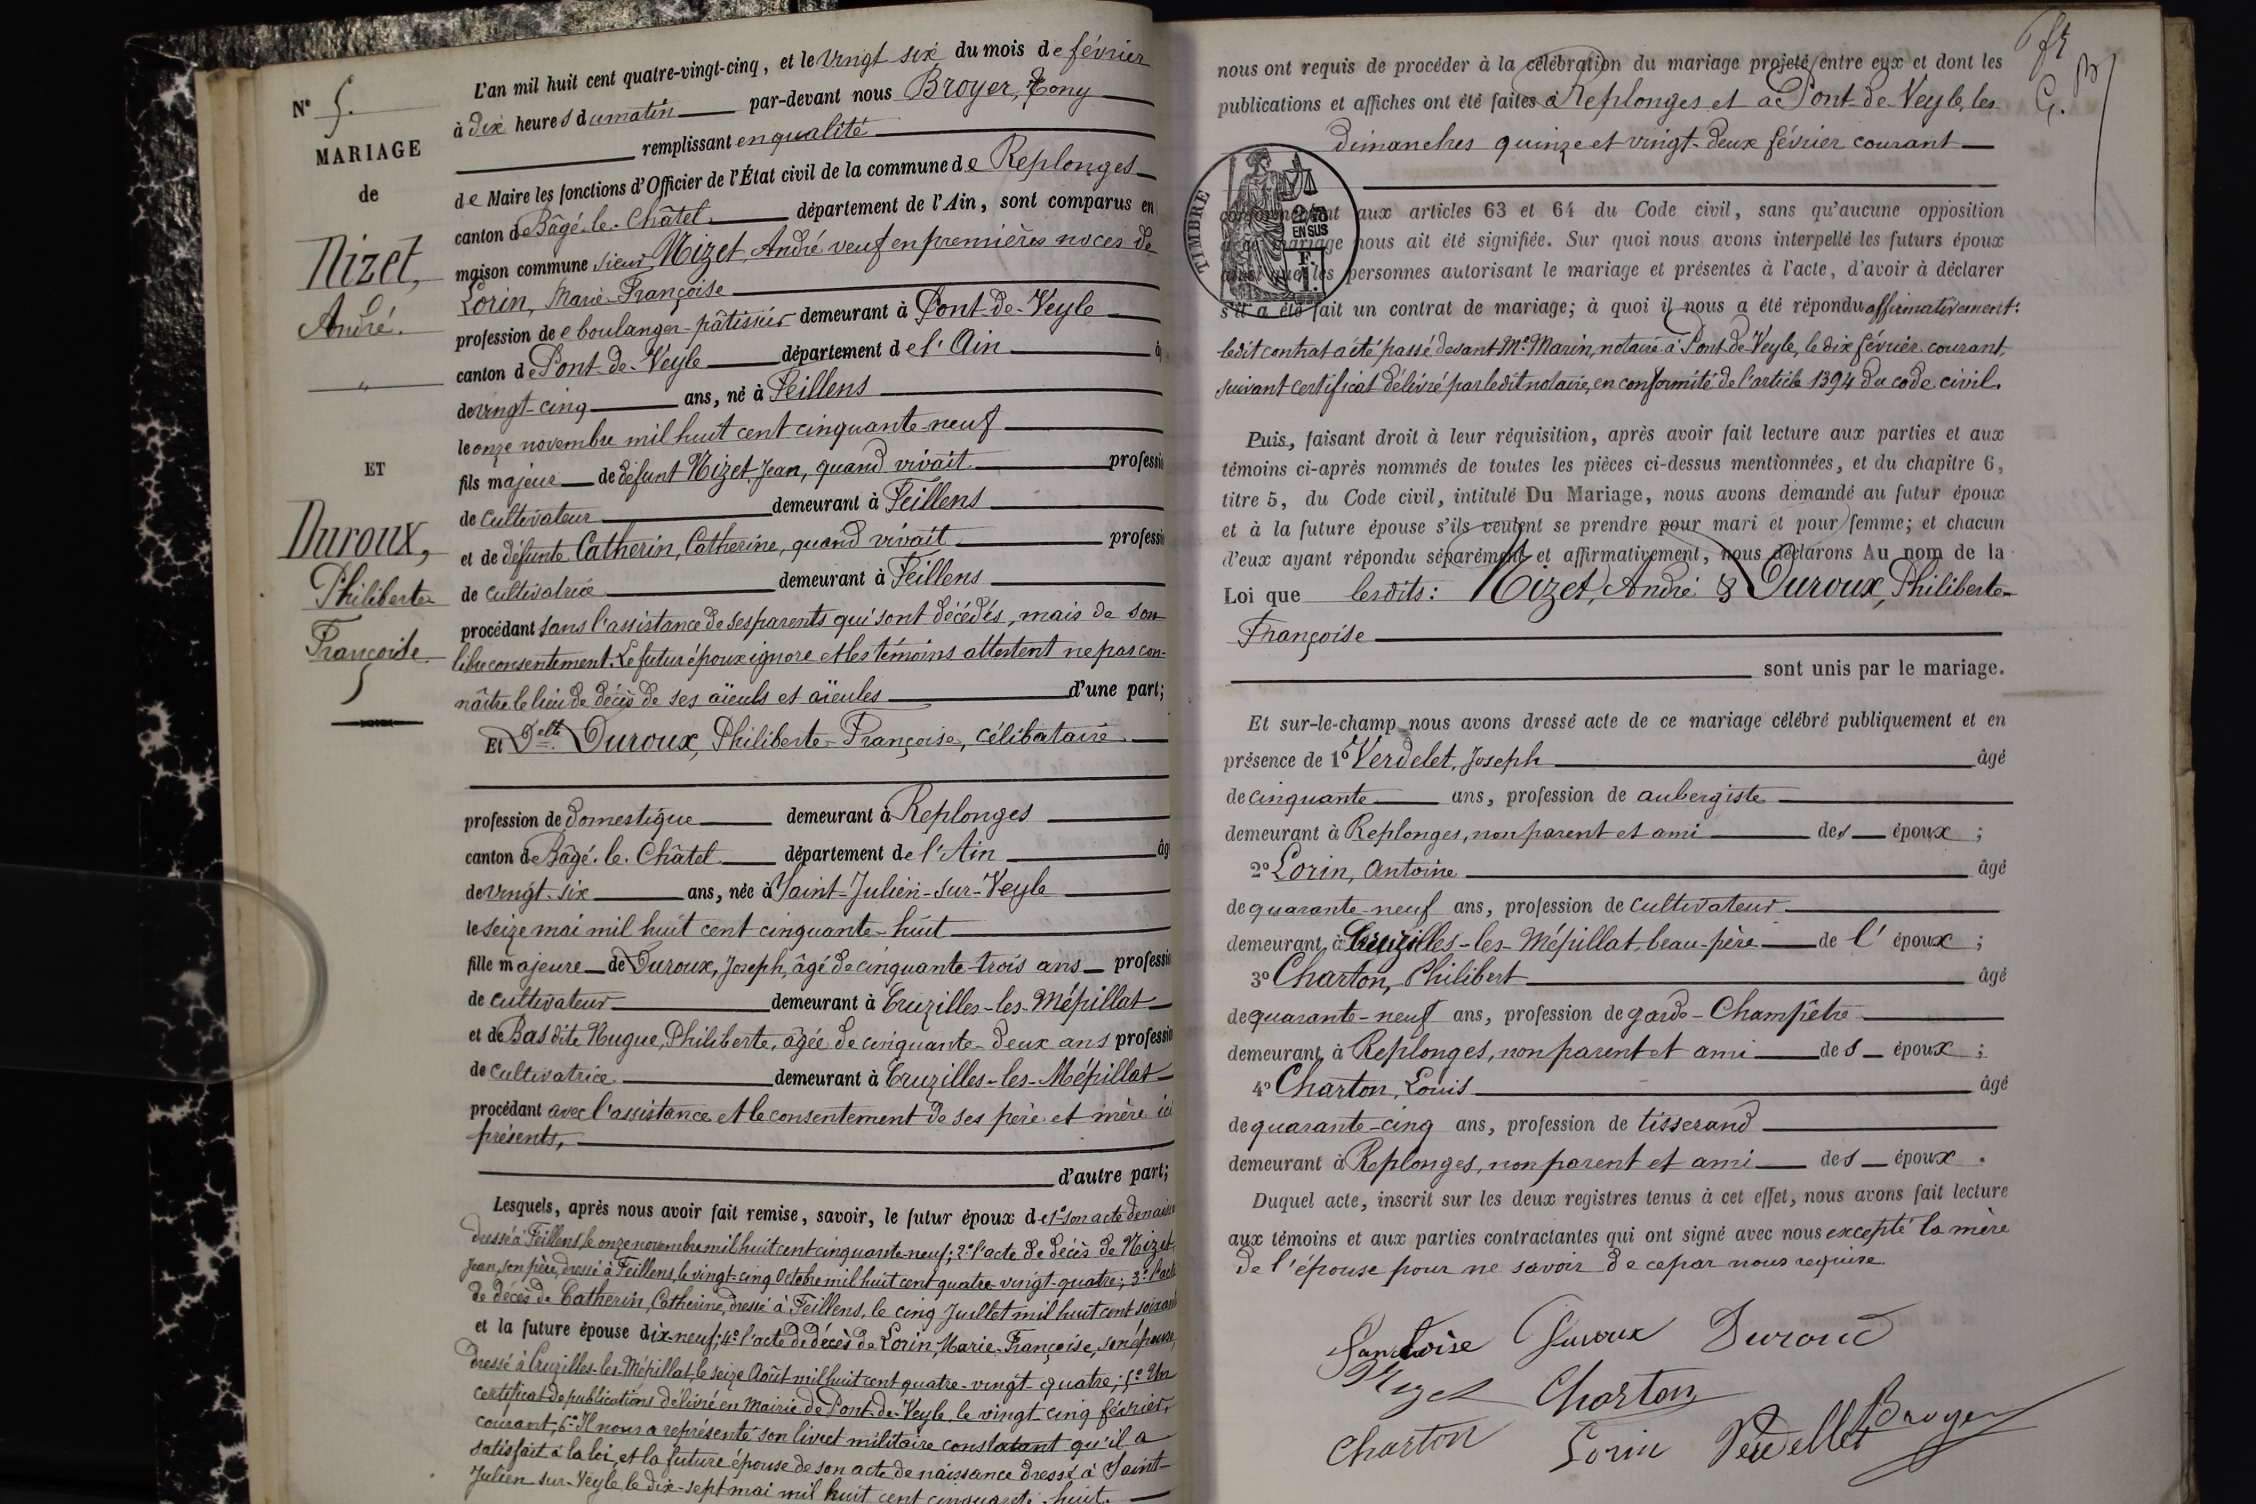 N° 5.
MARIAGE
de
Nizet,
André.
"
ET
Duroux,
Philiberte
Françoise
L'an mil huit cent quatre-vingt-cinq, et le vingt six du mois de février
à dix heures du matin par-devant nous Broyer, Tony
remplissant en qualité
de Maire les fonctions d'Officier de l'État civil de la commune de Replonges
canton de Bâgé-le-Châtel département de l'Ain, sont comparus en
maison commune sieur Nizet, André veuf en premières noces de
Lorin, Marie-Françoise
profession de e boulanger-pâtissier demeurant à Pont-de-Veyle
canton de Pont-de-Veyle département de l'Ain â
de vingt-cinq ans, né à Feillens
le onze novembre mil huit cent cinquante-neuf
fils majeur de défunt Nizet, Jean, quand vivait professi
de cultivateur demeurant à Feillens
et de défunte Catherin, Catherine, quand vivait professi
de cultivatrice demeurant à Feillens
procédant sans l'assistance de ses parents qui sont décédés, mais de son
libre consentement. Le futur époux ignore et les témoins attestent ne pas con-
naître le lieu de décès de ses aïeuls et aïeules d'une part;
Et Delle Duroux, Philiberte-Françoise, célibataire
profession de domestique demeurant à Replonges
canton de Bâgé-le-Châtel département de l'Ain âg
de vingt-six ans, née à Saint-Julien-sur-Veyle
le seize mai mil huit cent cinquante-huit
fille majeure de Duroux, Joseph, âgé de cinquante-trois ans professi
de cultivateur demeurant à Cruzilles-les-Mépillat
et de Bas dite Nugue, Philiberte, âgée de cinquante-deux ans professi
de cultivatrice demeurant à Cruzilles-les-Mépillat
procédant avec l'assistance et le consentement de ses père et mère ici
présents,
d'autre part;
Lesquels, après nous avoir fait remise, savoir, le futur époux de 1° son acte de naiss
dressé à Feillens, le onze novembre mil huit cent cinquante-neuf; 2° l'acte de décès de Nizet,
Jean, son père, dressé à Feillens, le vingt-cinq Octobre mil huit cent quatre-vingt-quatre; 3° l'acte
de décès de Catherin, Catherine, dressé à Feillens, le cinq Juillet mil huit cent soixante
et la future épouse dix-neuf; 4° l'acte de décès de Lorin, Marie-Françoise, son épouse,
dressé à Cruzilles-les-Mépillat, le seize Août mil huit cent quatre-vingt-quatre; 5° Un
certificat de publications délivré en Mairie de Pont-de-Veyle, le vingt-cinq février
courant; 6° Il nous a représenté son livret militaire constatant qu'il a
satisfait à la loi, et la future épouse de son acte de naissance dressé à Saint-
Julien-sur-Veyle, le dix-sept mai mil huit cent cinquante-huit.
nous ont requis de procéder à la célébration du mariage projeté entre eux et dont les
publications et affiches ont été faites à Replonges et à Pont-de-Veyle, les
dimanches quinze et vingt-deux février courant
TIMBRE
2/10
EN SUS
F.
1.
conformément aux articles 63 et 64 du Code civil, sans qu'aucune opposition
à ce mariage nous ait été signifiée. Sur quoi nous avons interpellé les futurs époux
ainsi que les personnes autorisant le mariage et présentes à l'acte, d'avoir à déclarer
s'il a été fait un contrat de mariage; à quoi il nous a été répondu affirmativement:
ledit contrat a été passé devant Me Marin, notaire à Pont-de-Veyle, le dix février courant,
suivant certificat délivré par ledit notaire, en conformité de l'article 1394 du code civil.
Puis, faisant droit à leur réquisition, après avoir fait lecture aux parties et aux
témoins ci-après nommés de toutes les pièces ci-dessus mentionnées, et du chapitre 6,
titre 5, du Code civil, intitulé Du Mariage, nous avons demandé au futur époux
et à la future épouse s'ils veulent se prendre pour mari et pour femme; et chacun
d'eux ayant répondu séparément et affirmativement, nous déclarons Au nom de la
Loi que lesdits: Nizet, André & Duroux, Philiberte-
Françoise
sont unis par le mariage.
Et sur-le-champ nous avons dressé acte de ce mariage célébré publiquement et en
présence de 1° Verdelet, Joseph âgé
de cinquante ans, profession de aubergiste
demeurant à Replonges, non parent et ami des époux ;
2° Lorin, Antoine âgé
de quarante-neuf ans, profession de cultivateur
demeurant à Cruzilles-les-Mépillat, beau-père de l'époux ;
3° Charton, Philibert âgé
de quarante-neuf ans, profession de garde-Champêtre
demeurant à Replonges, non parent et ami des époux ;
4° Charton, Louis âgé
de quarante-cinq ans, profession de tisserand
demeurant à Replonges, non parent et ami des époux .
Duquel acte, inscrit sur les deux registres tenus à cet effet, nous avons fait lecture
aux témoins et aux parties contractantes qui ont signé avec nous excepté la mère
de l'épouse pour ne savoir de ce par nous requise.
Françoise Duroux Duroux
Nizet Charton
Charton Lorin Verdellet Broyer